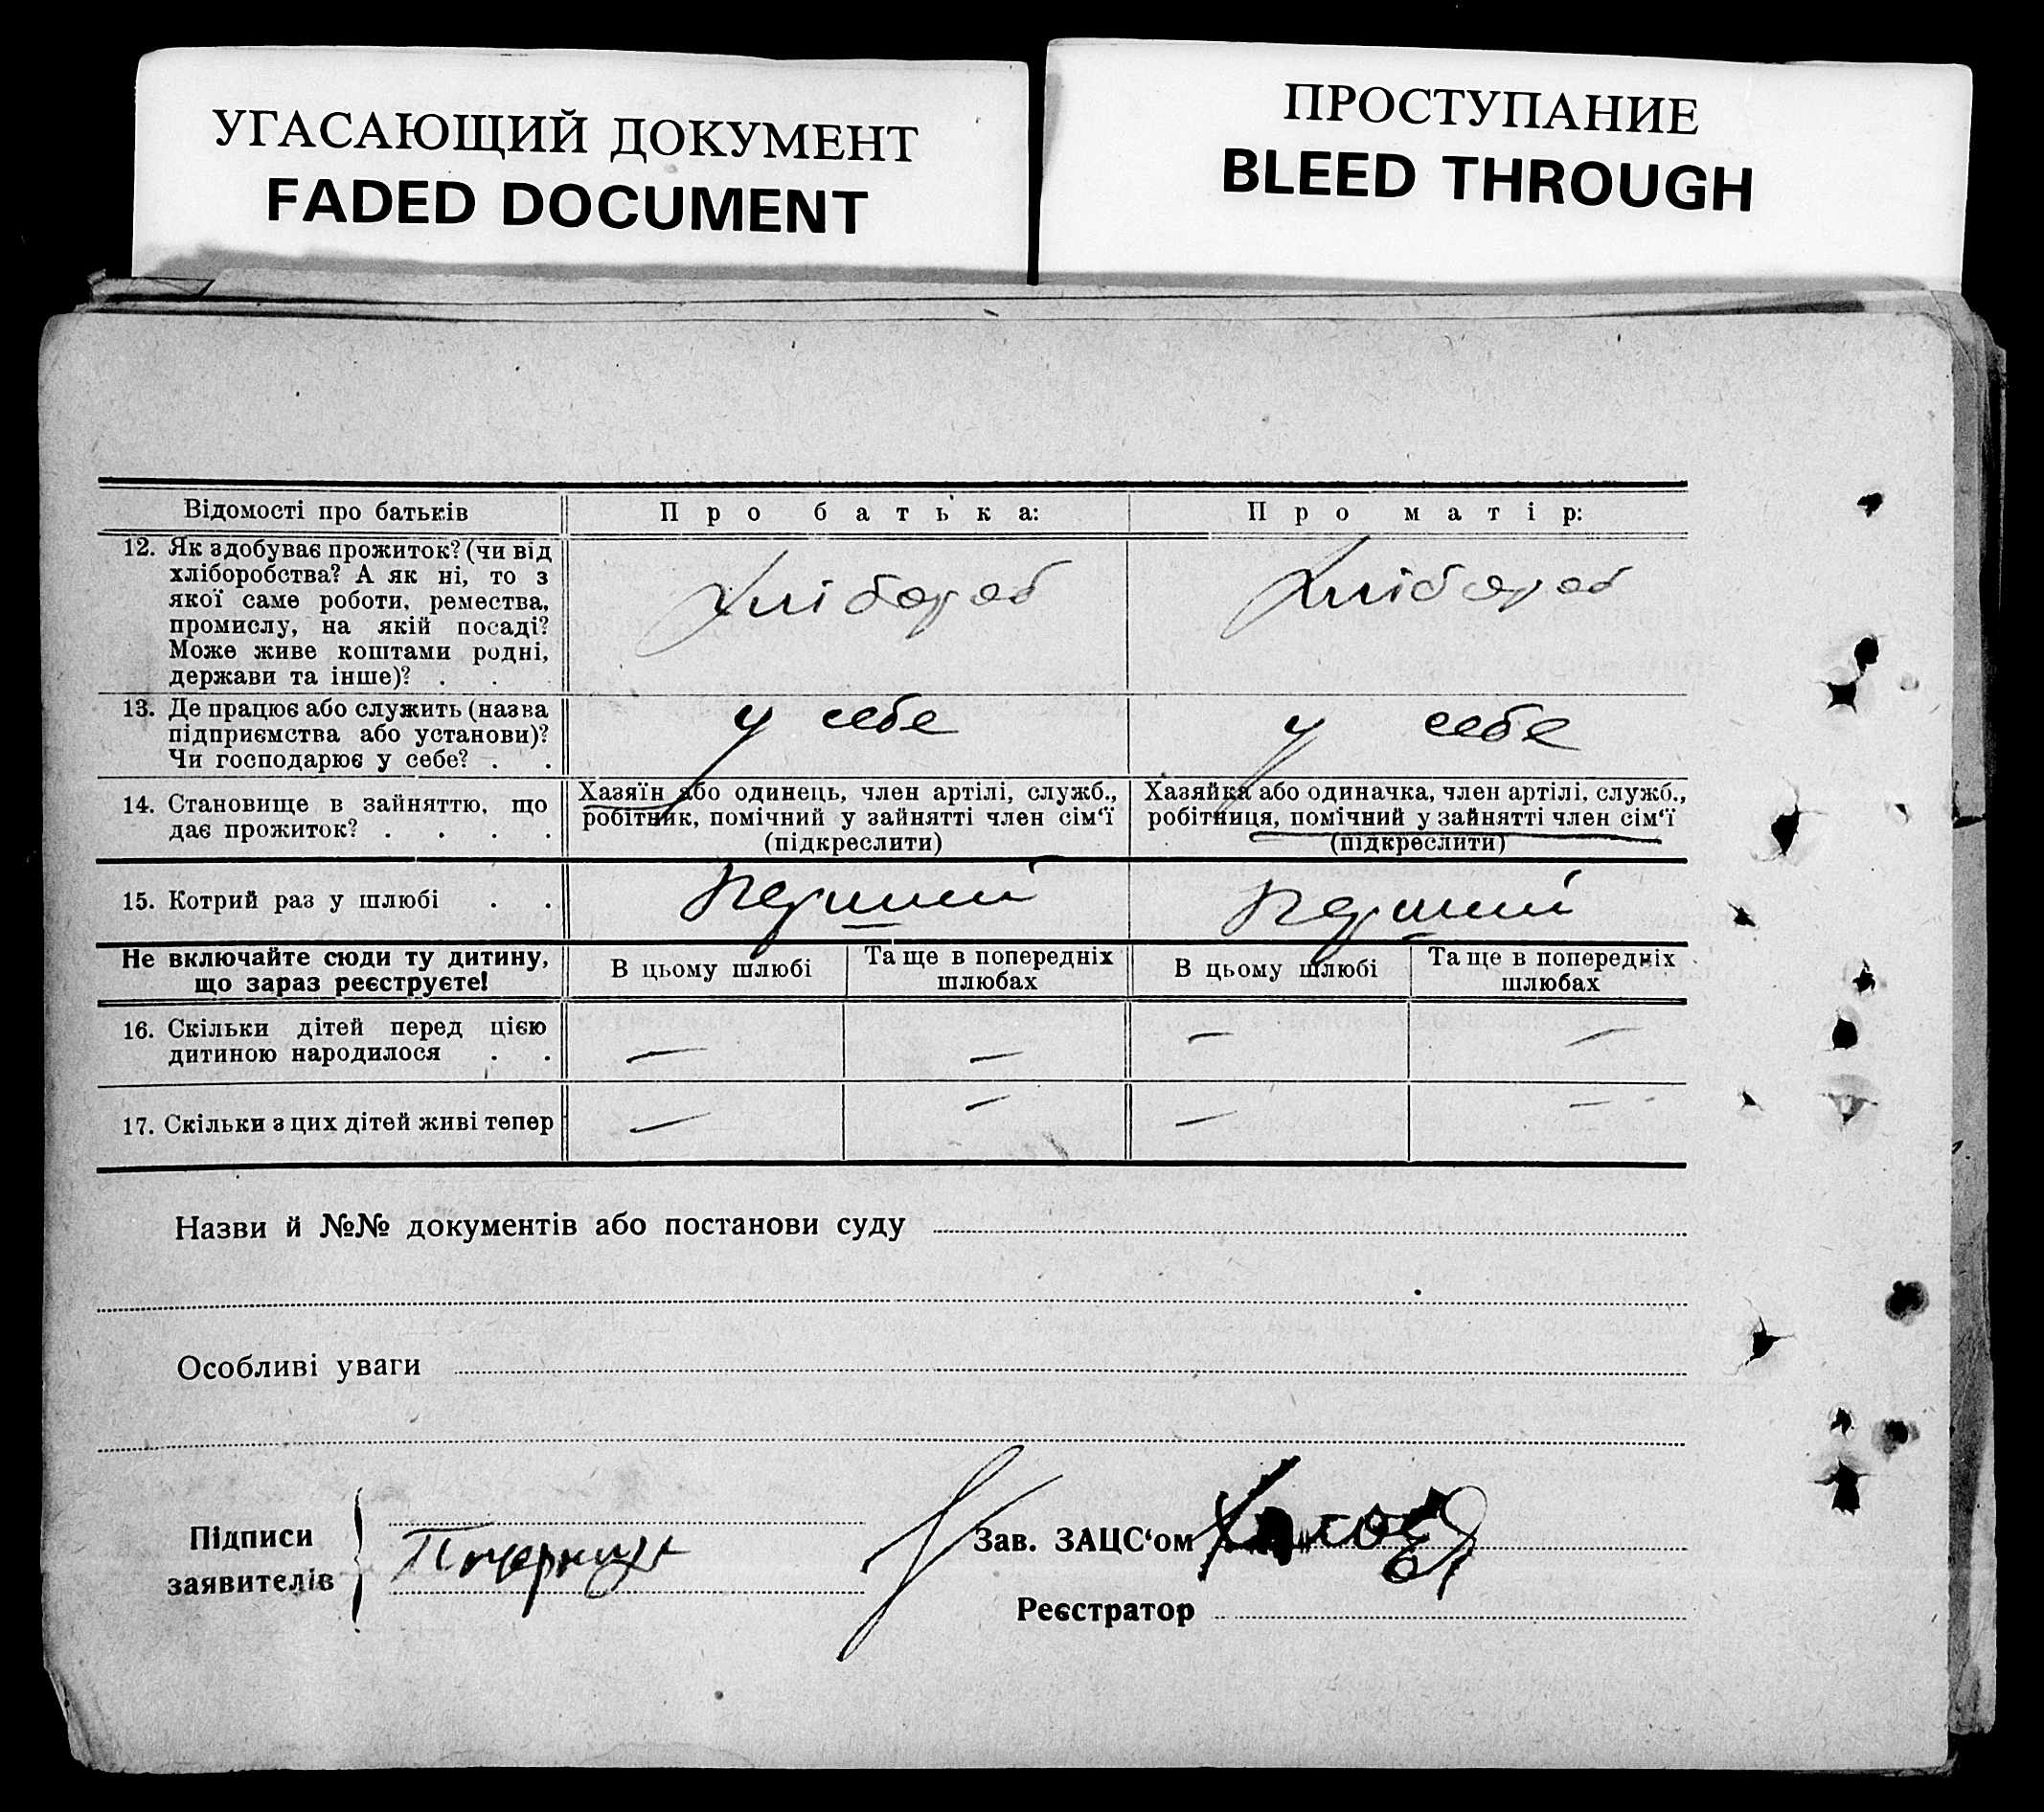 УГАСАЮЩИЙ ДОКУМЕНТ
FADED DOCUMENT
ПРОСТУПАНИЕ
BLEED THROUGH
Відомості про батьків
Про батька:
Про матір:
12. Як здобуває прожиток? (чи від
хліборобства? А як ні, то з
якої саме роботи, ремества,
промислу, на якій посаді?
Може живе коштами родні,
держави та інше)? . .
Хлібороб
Хлібороб
13. Де працює або служить (назва
підприємства або установи)?
Чи господарює у себе? . .
у себе
у себе
14. Становище в зайняттю, що
дає прожиток? . . . .
Хазяїн або одинець, член артілі, служб.,
робітник, помічний у зайнятті член сім'ї
(підкреслити)
Хазяйка або одиначка, член артілі, служб.,
робітниця, помічний у зайнятті член сім'ї
(підкреслити)
15. Котрий раз у шлюбі . .
Перший
Перший
Не включайте сюди ту дитину,
що зараз реєструєте!
В цьому шлюбі
Та ще в попередніх
шлюбах
В цьому шлюбі
Та ще в попередніх
шлюбах
16. Скільки дітей перед цією
дитиною народилося . .
— — — —
17. Скільки з цих дітей живі тепер
— — — —
Назви й №№ документів або постанови суду
Особливі уваги
Підписи
заявителів
Зав. ЗАЦС'ом
Реєстратор